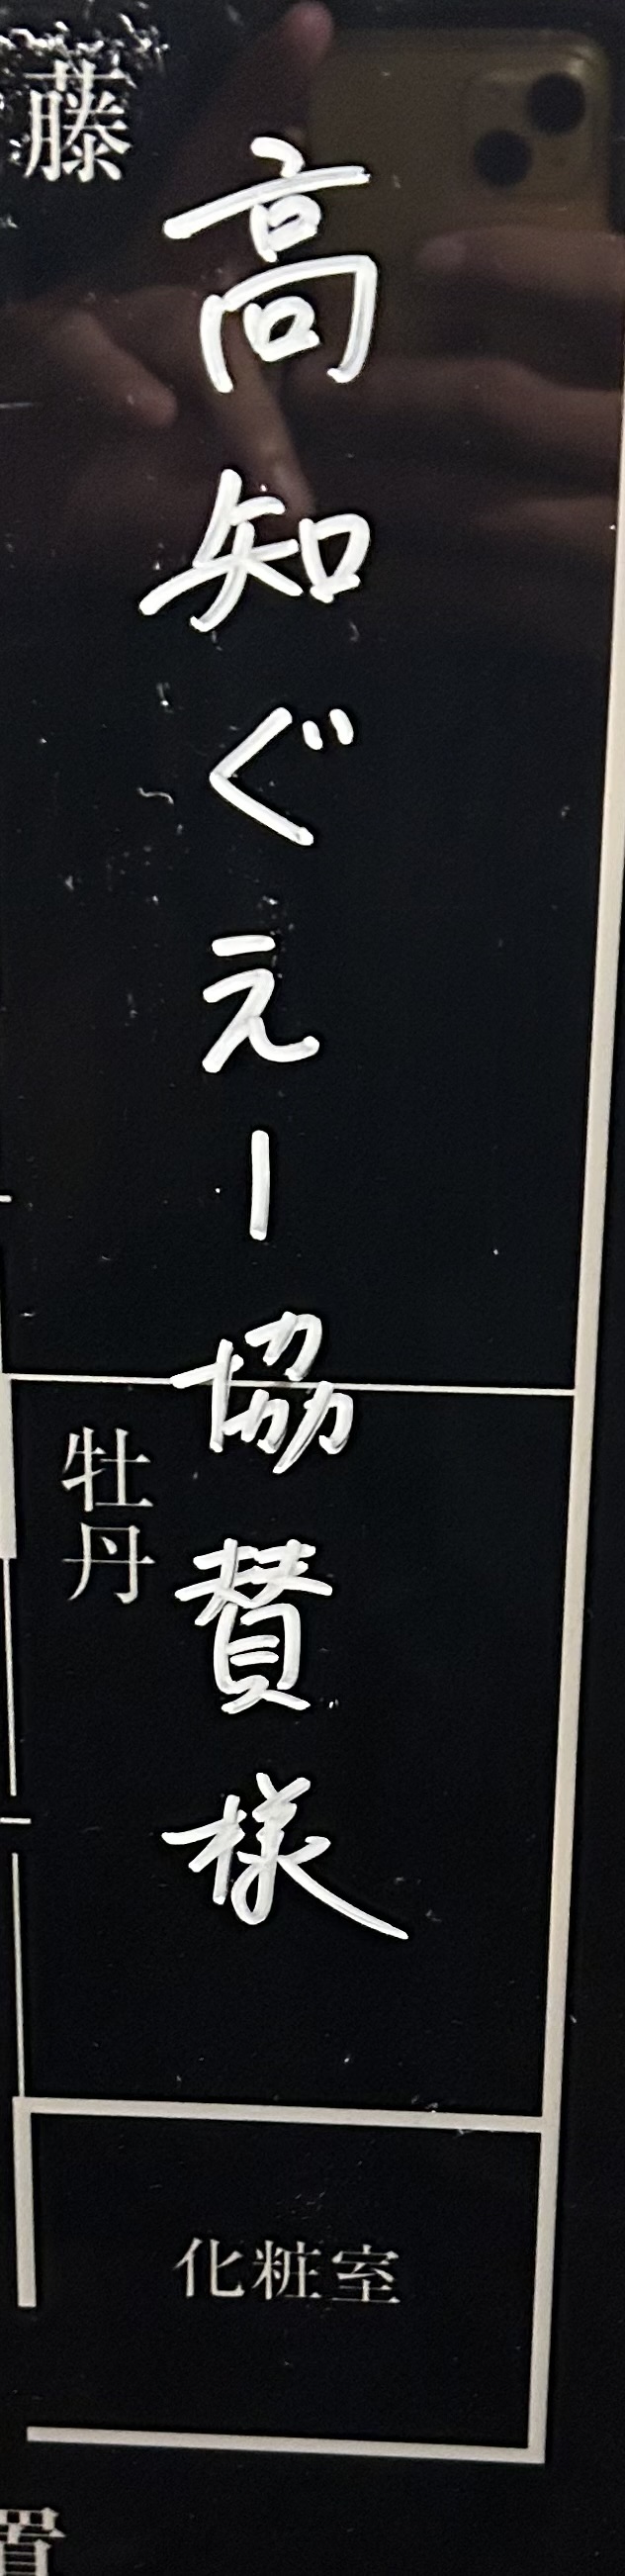 高知ぐえー協賛様
藤
牡丹
化粧室
置